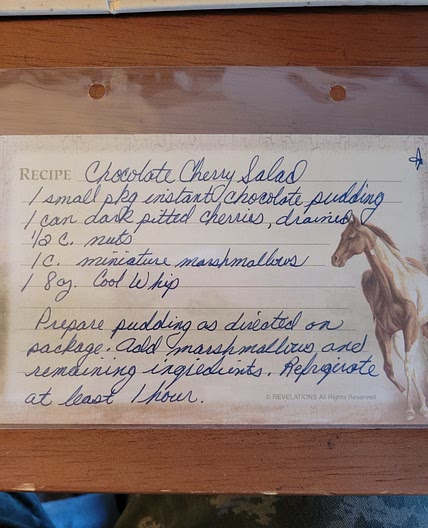 RECIPE Chocolate Cherry Salad
1 small pkg instant chocolate pudding
1 can dark pitted cherries, drained
1/2 c. nuts
1 c. miniature marshmallows
1 8oz. Cool Whip
Prepare pudding as directed on
package. Add marshmallows and
remaining ingredients. Refrigerate
at least 1 hour.
© REVELATIONS All Rights Reserved